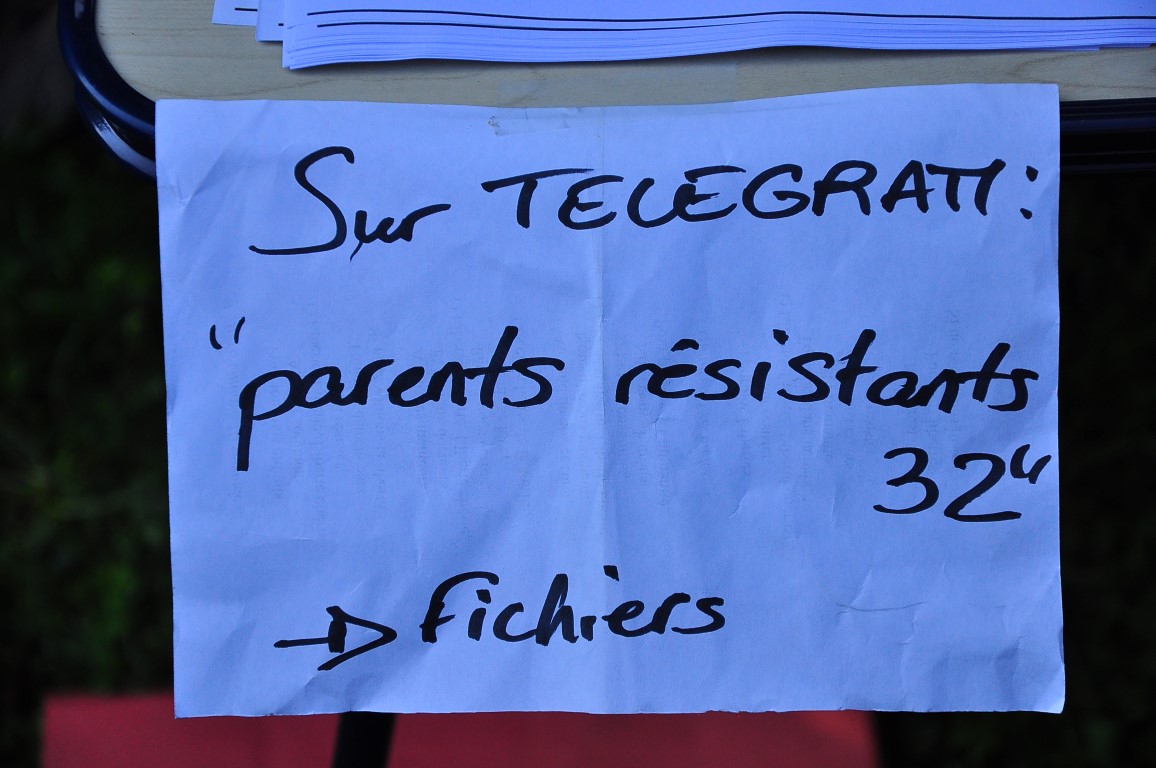 Sur TELEGRAM :
"parents résistants
32"
→ fichiers